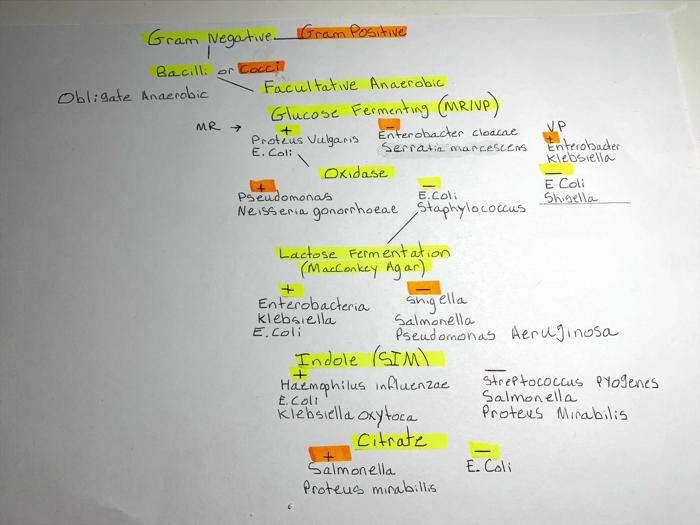 Gram Negative Gram Positive
Bacilli or Cocci
Obligate Anaerobic
Facultative Anaerobic
Glucose Fermenting (MR/VP)
MR →
+
Proteus Vulgaris
E. Coli
−
Enterobacter cloacae
Serratia marcescens
VP
+
Enterobacter
Klebsiella
−
E Coli
Shigella
Oxidase
+
Pseudomonas
Neisseria gonorrhoeae
−
E.Coli
Staphylococcus
Lactose Fermentation
(MacConkey Agar)
+
Enterobacteria
Klebsiella
E. Coli
−
Shigella
Salmonella
Pseudomonas Aeruginosa
Indole (SIM)
+
Haemophilus influenzae
E. Coli
Klebsiella oxytoca
−
Streptococcus Pyogenes
Salmonella
Proteus Mirabilis
Citrate
+
Salmonella
Proteus mirabillis
−
E. Coli